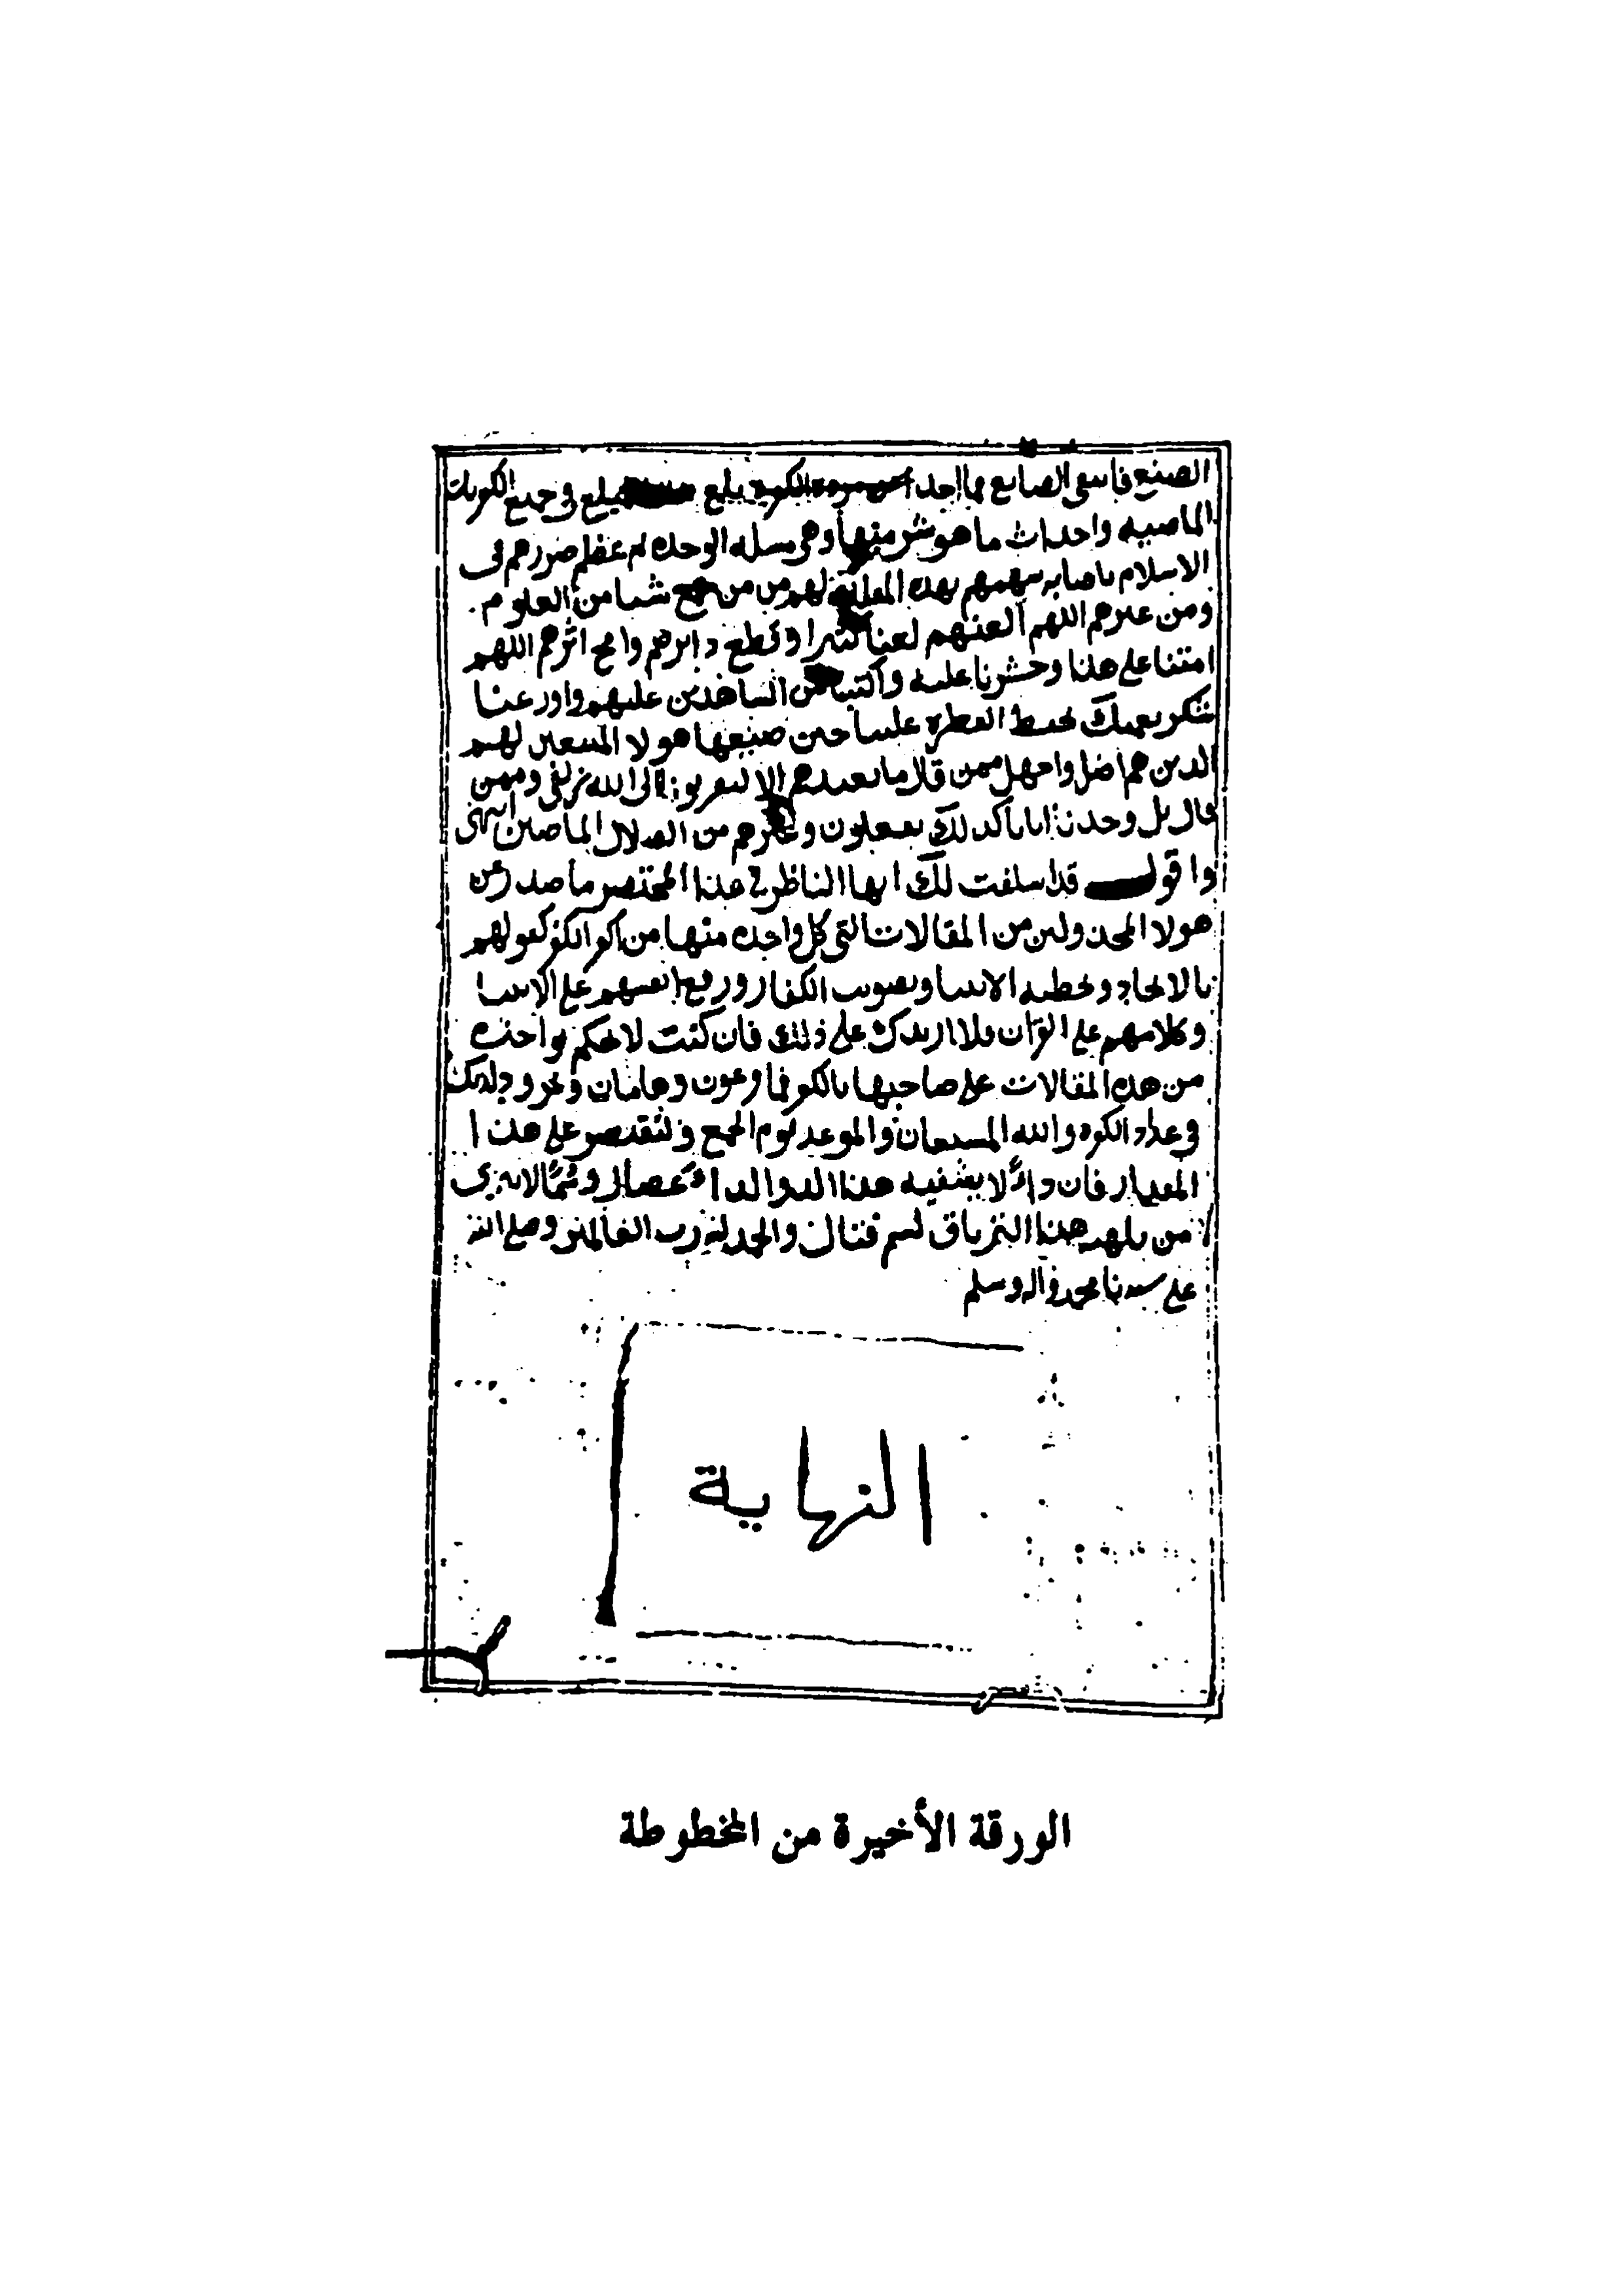 الصنيع فاسى الصانع بما احد الكفريه يبلع مبلع فى جميع الكفريات
الماضيه واحداث ما هو شر منها وهى مسله الوحده ثم عظم ضررهم فى
الاسلام باصابه سهمهم بهذه لهم من من شيا من العلوم
ومن غيرهم اللهم العنهم لعنا كثيرا واقطع دابرهم وامح اثرهم اللهم
امتنا على هذا وحشرنا عليه واكتبنا من الشاهدين عليهم واوزعنا
شكر نعمتك بحفظ الفطره علينا حين ضيعها هولا المتبعين لهم
الدين هم اضل واجهل ممن قال ما نعبدهم الا ليقربونا الى الله زلفى وممن
قال بل وجدنا ابانا كذلك يفعلون وغيرهم من الضلال الماضين انتهى
واقول قد اسلفت لك ايها الناظر فى هذا المختصر ما صدر عن
هولا المخذولين من المقالات التى كل واحده منها من اكفر الكفر كقولهم
بالاتحاد وتخطيه الانبيا وتصويب الكفار ورفع انفسهم على الانبيا
وكلامهم على القران فلا ازيدك على ذلك فان كنت لا تحكم بواحده
من هذه المقالات على صاحبها بالكفر فما فرعون وهامان ونمرود لديك
فى عداد الكفره والله المستعان والموعد يوم الجمع ولنقتصر على هذا
المقدار فان داء لا يشفيه هذا الدوا لداء عضال وسما لا يبرى
من بلهه هذا الترياق لسم قتال والحمد لله رب العالمين وصلى الله
على سيدنا محمد واله وسلم
النهاية
الورقة الأخيرة من المخطوطة